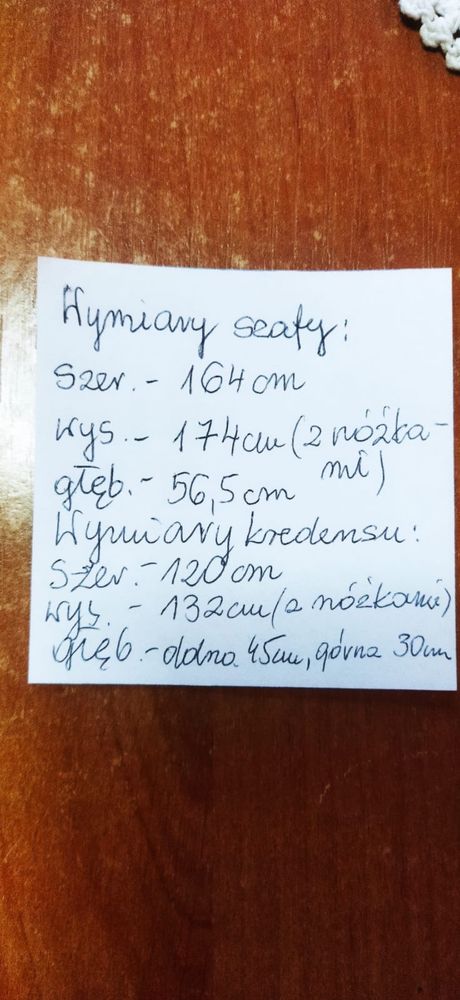 Wymiary szafy:
Szer. - 164 cm
wys. - 174cm (z nóżka-
mi)
głęb. - 56,5 cm
Wymiary kredensu:
Szer. - 120 cm
wys. - 132cm (z nóżkami)
głęb. - dolna 45cm, górna 30cm